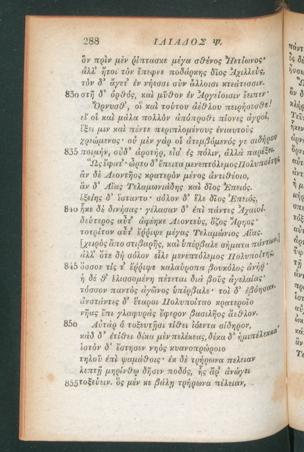 288 ΙΛΙΑΔΟΣ Ψ.
ὃν πρὶν μὲν ῥίπτασκε μέγα σθένος Ἠετίωνος·
ἀλλ' ἤτοι τὸν ἔπεφνε ποδάρκης δῖος Ἀχιλλεύς,
τὸν δ' ἄγετ' ἐν νήεσσι σὺν ἄλλοισι κτεάτεσσιν.
830 στῆ δ' ὀρθός, καὶ μῦθον ἐν Ἀργείοισιν ἔειπεν·
Ὄρνυσθ', οἳ καὶ τούτου ἀέθλου πειρήσεσθε!
εἴ οἱ καὶ μάλα πολλὸν ἀπόπροθι πίονες ἀγροί,
ἕξει μιν καὶ πέντε περιπλομένους ἐνιαυτοὺς
χρεώμενος· οὐ μὲν γάρ οἱ ἀτεμβόμενός γε σιδήρου
835 ποιμήν, οὐδ' ἀροτήρ, εἶσ' ἐς πόλιν, ἀλλὰ παρέξει.
Ὣς ἔφατ'· ὦρτο δ' ἔπειτα μενεπτόλεμος Πολυποίτης,
ἂν δὲ Λεοντῆος κρατερὸν μένος ἀντιθέοιο,
ἂν δ' Αἴας Τελαμωνιάδης καὶ δῖος Ἐπειός.
ἑξείης δ' ἵσταντο· σόλον δ' ἕλε δῖος Ἐπειός,
840 ἧκε δὲ δινήσας· γέλασαν δ' ἐπὶ πάντες Ἀχαιοί.
δεύτερος αὖτ' ἀφέηκε Λεοντεύς, ὄζος Ἄρηος·
τὸ τρίτον αὖτ' ἔῤῥιψε μέγας Τελαμώνιος Αἴας,
[χειρὸς ἄπο στιβαρῆς, καὶ ὑπέρβαλε σήματα πάντων.]
ἀλλ' ὅτε δὴ σόλον εἷλε μενεπτόλεμος Πολυποίτης,
845 ὅσσον τίς τ' ἔῤῥιψε καλαύροπα βουκόλος ἀνήρ·
ἡ δέ θ' ἑλισσομένη πέτεται διὰ βοῦς ἀγελαίας·
τόσσον παντὸς ἀγῶνος ὑπέρβαλε· τοὶ δ' ἐβόησαν.
ἀνστάντες δ' ἕταροι Πολυποίταο κρατεροῖο
νῆας ἔπι γλαφυρὰς ἔφερον βασιλῆος ἄεθλον.
850 Αὐτὰρ ὁ τοξευτῇσι τίθει ἰόεντα σίδηρον,
κὰδ δ' ἐτίθει δέκα μὲν πελέκεας, δέκα δ' ἡμιπέλεκκα·
ἱστὸν δ' ἔστησεν νηὸς κυανοπρώροιο
τηλοῦ ἐπὶ ψαμάθοις· ἐκ δὲ τρήρωνα πέλειαν
λεπτῇ μηρίνθῳ δῆσεν ποδός, ἧς ἄρ' ἀνώγει
855 τοξεύειν. ὃς μέν κε βάλῃ τρήρωνα πέλειαν,